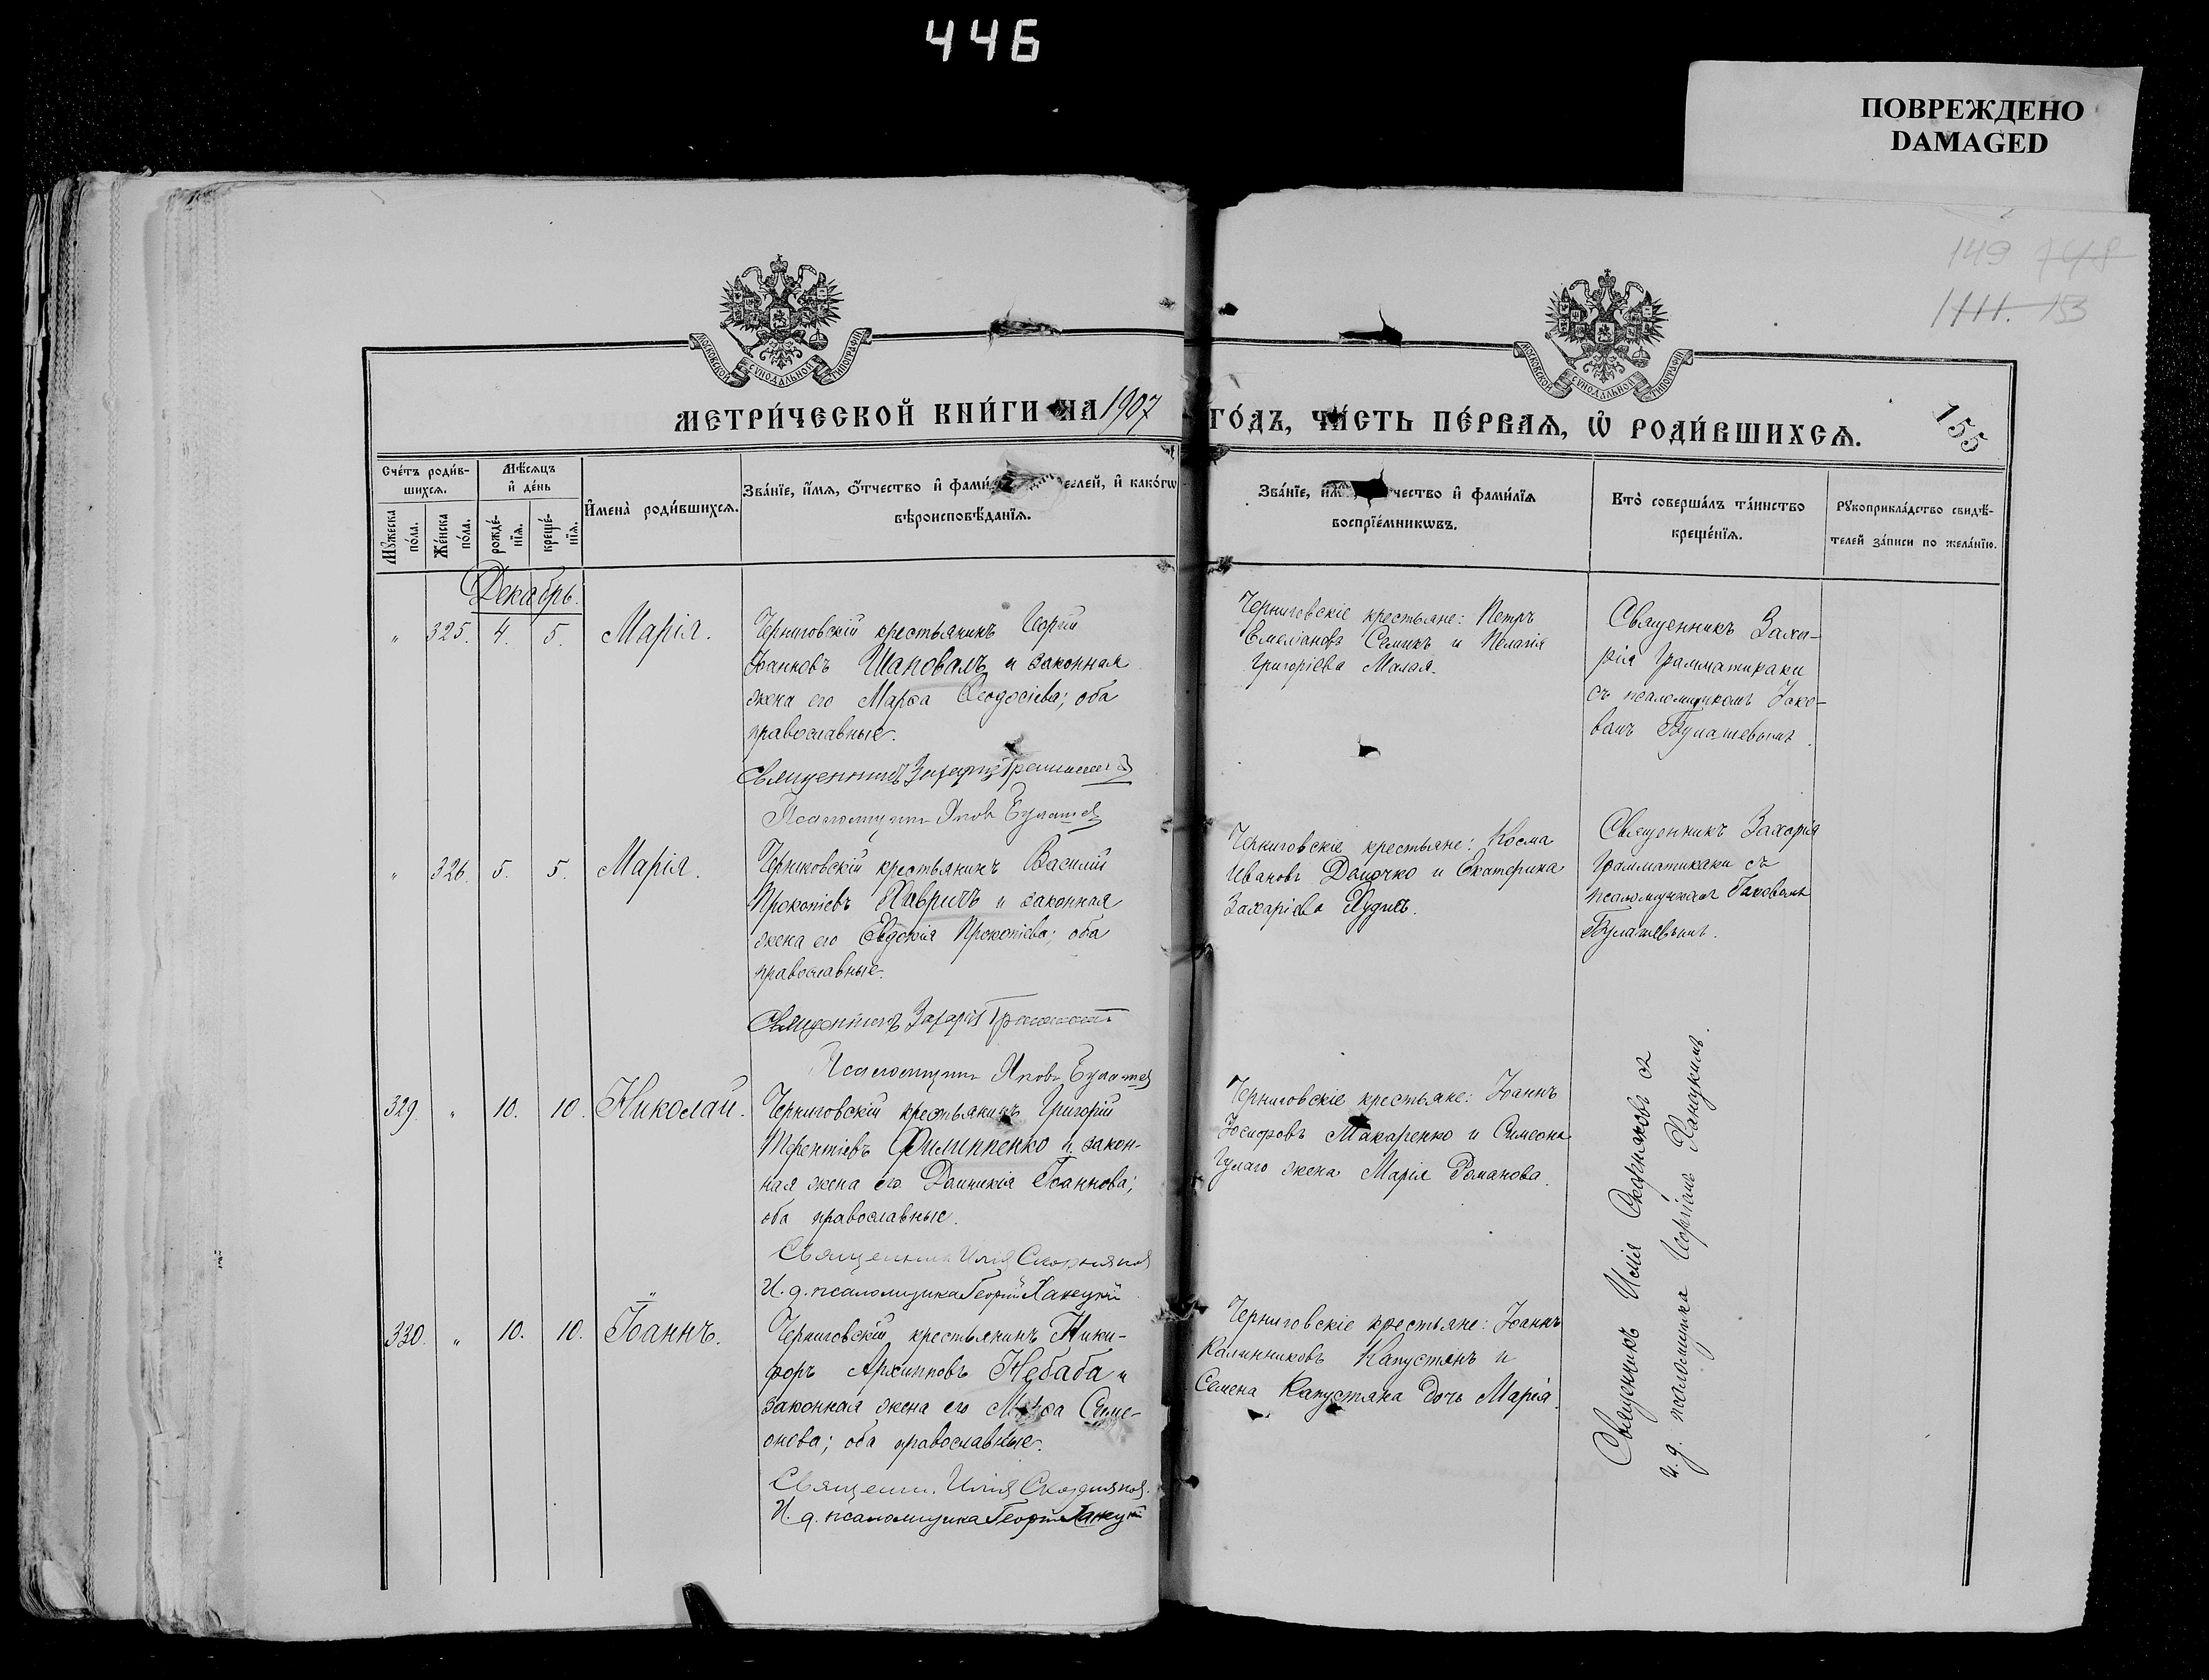 446
ПОВРЕЖДЕНО
DAMAGED
149 748
1111. 153
155
МОСКОВСКОЙ СѴНОДАЛЬНОЙ ТИПОГРАФІИ
МОСКОВСКОЙ СѴНОДАЛЬНОЙ ТИПОГРАФІИ
МЕТРИ́ЧЕСКОЙ КНИ́ГИ НА 1907 ГО́ДЪ, ЧА́СТЬ ПЕ́РВАЯ, Ѡ҆ РОДИ́ВШИХСѦ.
Сче́тъ роди́в-
шихсѧ.
Мꙋ́жеска
по́ла.
Же́нска
по́ла.
Мѣ́сѧцъ
и҆ де́нь
рожде́-
нїѧ.
креще́-
нїѧ.
И҆мена̀ роди́вшихсѧ.
Зва́нїе, и҆́мѧ, ѻ҆́тчество и҆ фами́ телей, и҆ како́гѡ
вѣроисповѣ́данїѧ.
Зва́нїе, и҆́мѧ, чество и҆ фами́лїѧ
воспрїе́мникѡвъ.
Кто̀ соверша́лъ та́инство
креще́нїѧ.
Рꙋкоприкла́дство свидѣ́-
телей за́писи по жела́нїю.
Декабрь.
" 325. 4. 5. Марія.
Черниговскій крестьянинъ Георгій
Іоанновъ Шаповалъ и законная
жена его Марѳа Ѳеодосіева; оба
православные.
Священникъ Захарія
Псаломщикъ Яковъ Булашев
Черниговскіе крестьяне: Петръ
Емеліановъ Семикъ и Пелагія
Григоріева Малая.
Священникъ Заха-
рія Грамматикаки
съ псаломщикомъ Іако-
вомъ Булашевымъ.
" 326. 5. 5. Марія.
Черниговскій крестьянинъ Василій
Прокопіевъ Хавричъ и законная
жена его Евдокія Прокопіева; оба
православные.
Священникъ Захарія
Псаломщикъ Яковъ Булашев
Черниговскіе крестьяне: Косма
Ивановъ Домочко и Екатерина
Захаріева Худикъ.
Священникъ Захарія
Грамматикаки съ
псаломщикомъ Іаковомъ
Булашевымъ.
329. " 10. 10. Николай.
Черниговскій крестьянинъ Григорій
Терентіевъ Филиппенко и закон-
ная жена его Домникія Іоаннова;
оба православные.
Священникъ Илія Скорняков
И. д. псаломщика Георгій Ханецкій
Черниговскіе крестьяне: Іоаннъ
Іосифовъ Макаренко и Симеона
Гулаго жена Марія Романова.
330. " 10. 10. Іоаннъ.
Черниговскій крестьянинъ Ники-
форъ Архипповъ Небаба и
законная жена его Марѳа Симе-
онова; оба православные.
Священн. Илія Скорняков.
И. д. псаломщика Георгій Ханецкій
Черниговскіе крестьяне: Іоаннъ
Калинниковъ Капустянъ и
Семена Капустяна дочь Марія.
Священникъ Илія Скорняковъ съ
и. д. псаломщика Георгіемъ Ханецкимъ.